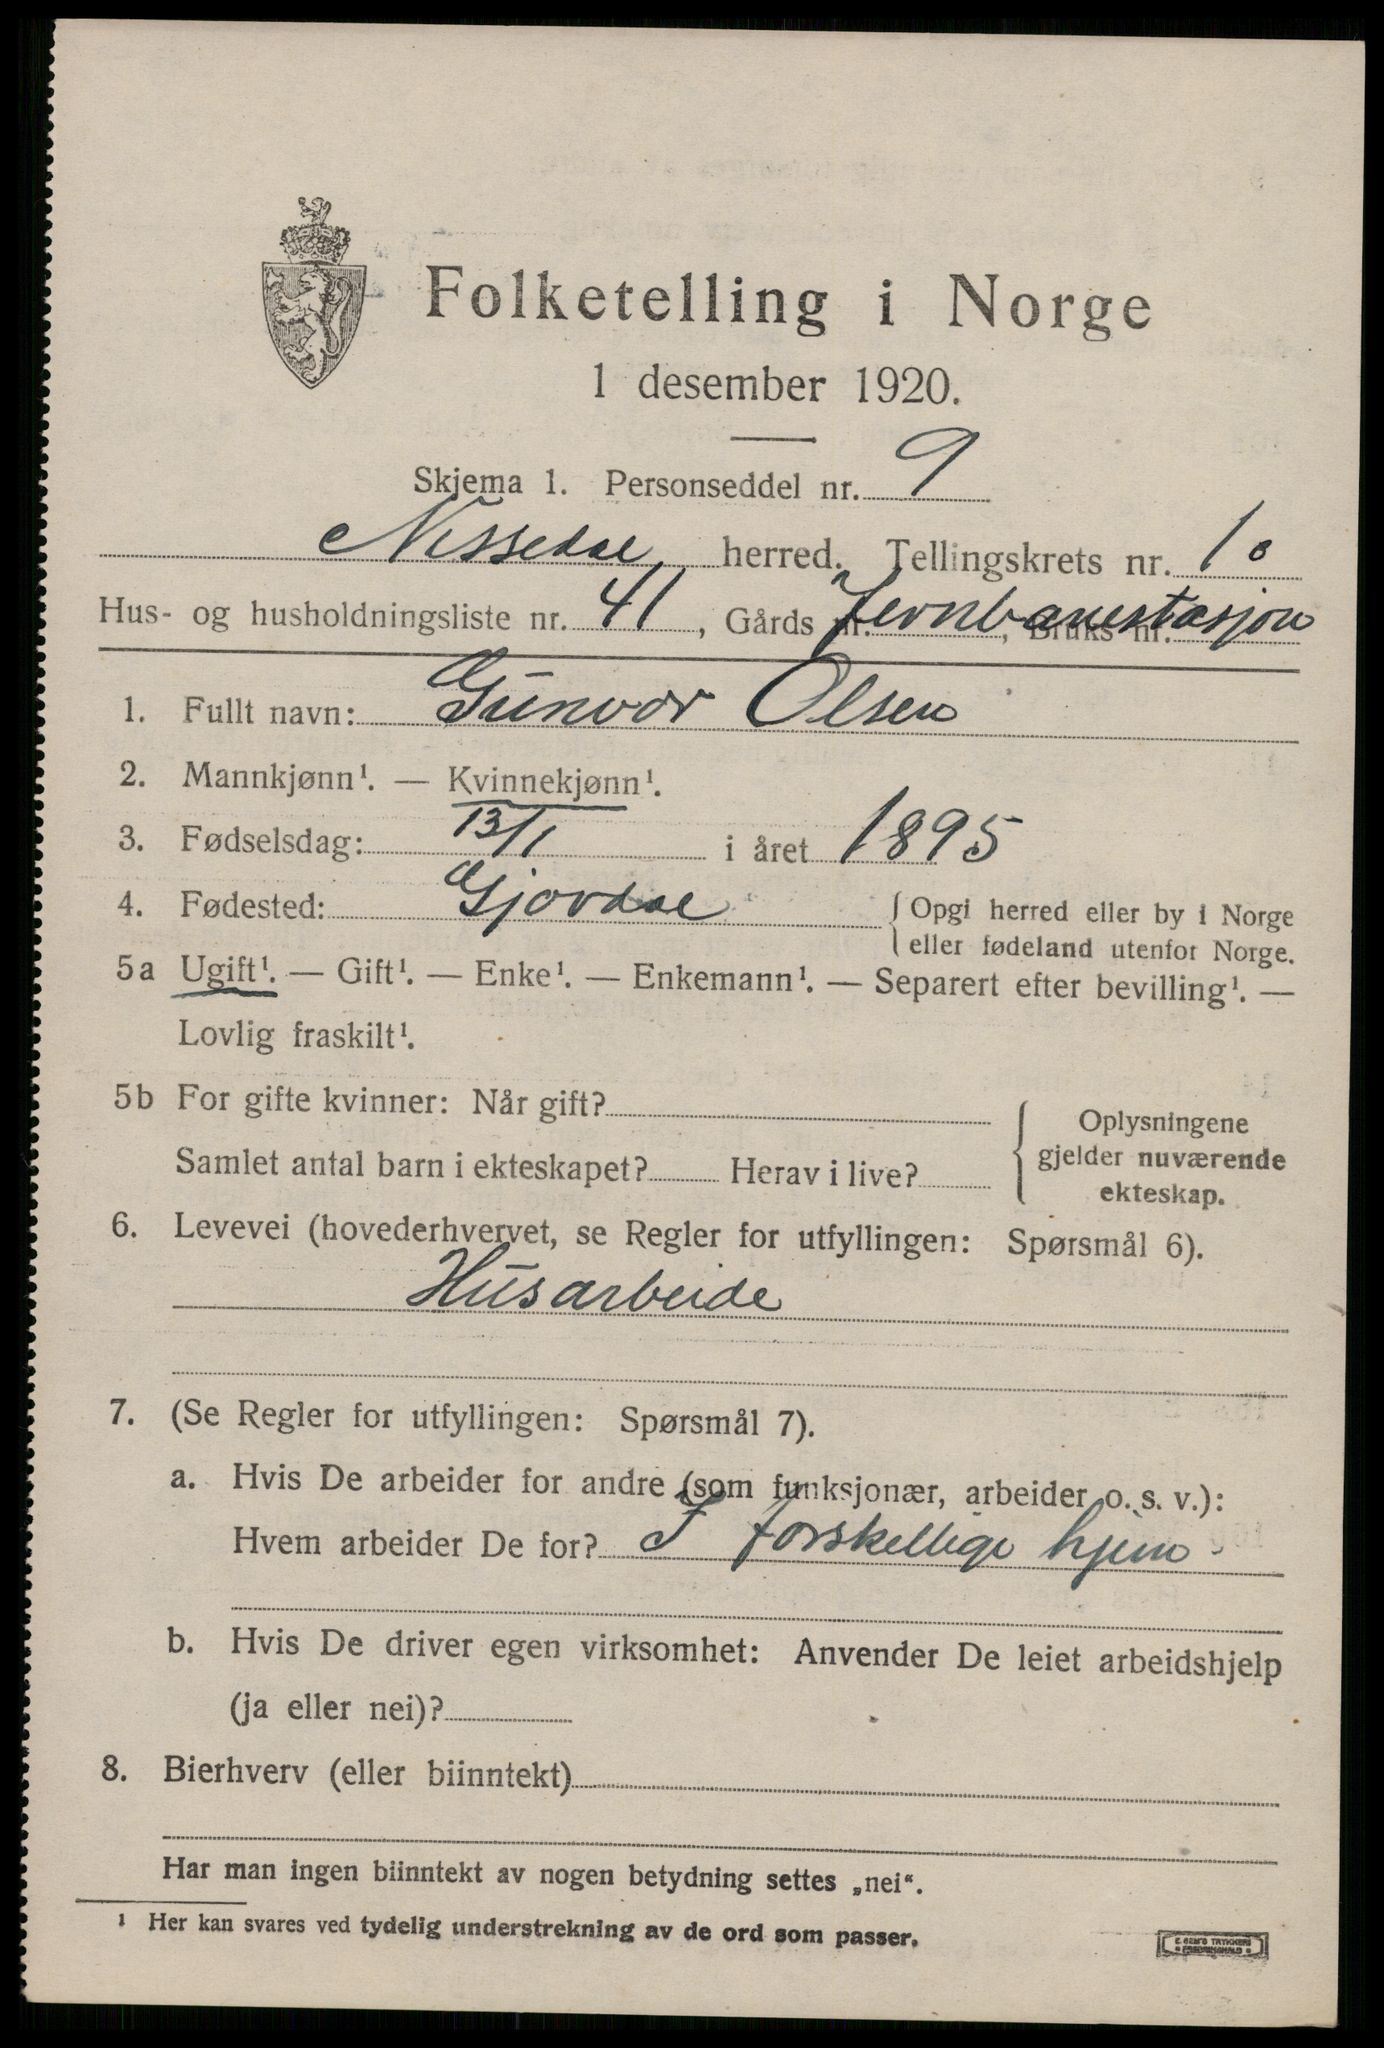 Folketelling i Norge
1 desember 1920.
Skjema 1. Personseddel nr. 9
Nissedal herred. Tellingskrets nr. 10
Hus- og husholdningsliste nr. 41, Gårds nr. Jernbanestasjon, Bruks nr.
1. Fullt navn: Gunvor Olsen
2. Mannkjønn¹. — Kvinnekjønn¹.
3. Fødselsdag: 13/1 i året 1895
4. Fødested: Gjovdal { Opgi herred eller by i Norge
eller fødeland utenfor Norge.
5a Ugift¹. — Gift¹. — Enke¹. — Enkemann¹. — Separert efter bevilling¹. —
Lovlig fraskilt¹.
5b For gifte kvinner: Når gift?
Samlet antal barn i ekteskapet? Herav i live?
{ Oplysningene
gjelder nuværende
ekteskap.
6. Levevei (hovederhvervet, se Regler for utfyllingen: Spørsmål 6).
Husarbeide
7. (Se Regler for utfyllingen: Spørsmål 7).
a. Hvis De arbeider for andre (som funksjonær, arbeider o. s. v.):
Hvem arbeider De for? I forskellige hjem.
b. Hvis De driver egen virksomhet: Anvender De leiet arbeidshjelp
(ja eller nei)?
8. Bierhverv (eller biinntekt)
Har man ingen biinntekt av nogen betydning settes „nei“.
¹ Her kan svares ved tydelig understrekning av de ord som passer.
E. SEM'S TRYKKERI
• FREDRIKSHALD •